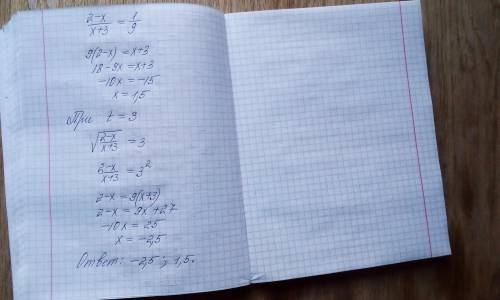 (2-x)/(x+3) = 1/9
9(2-x) = x+3
18-9x = x+3
-10x = -15
x = 1,5
При t = 3
√((2-x)/(x+3)) = 3
(2-x)/(x+3) = 3²
2-x = 9(x+3)
2-x = 9x+27
-10x = 25
x = -2,5
Ответ: -2,5; 1,5.